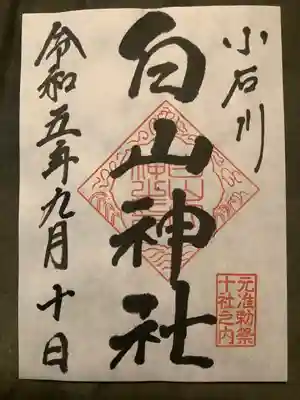 小石川
白山神社
元准勅祭
十社之内
令和五年九月十日